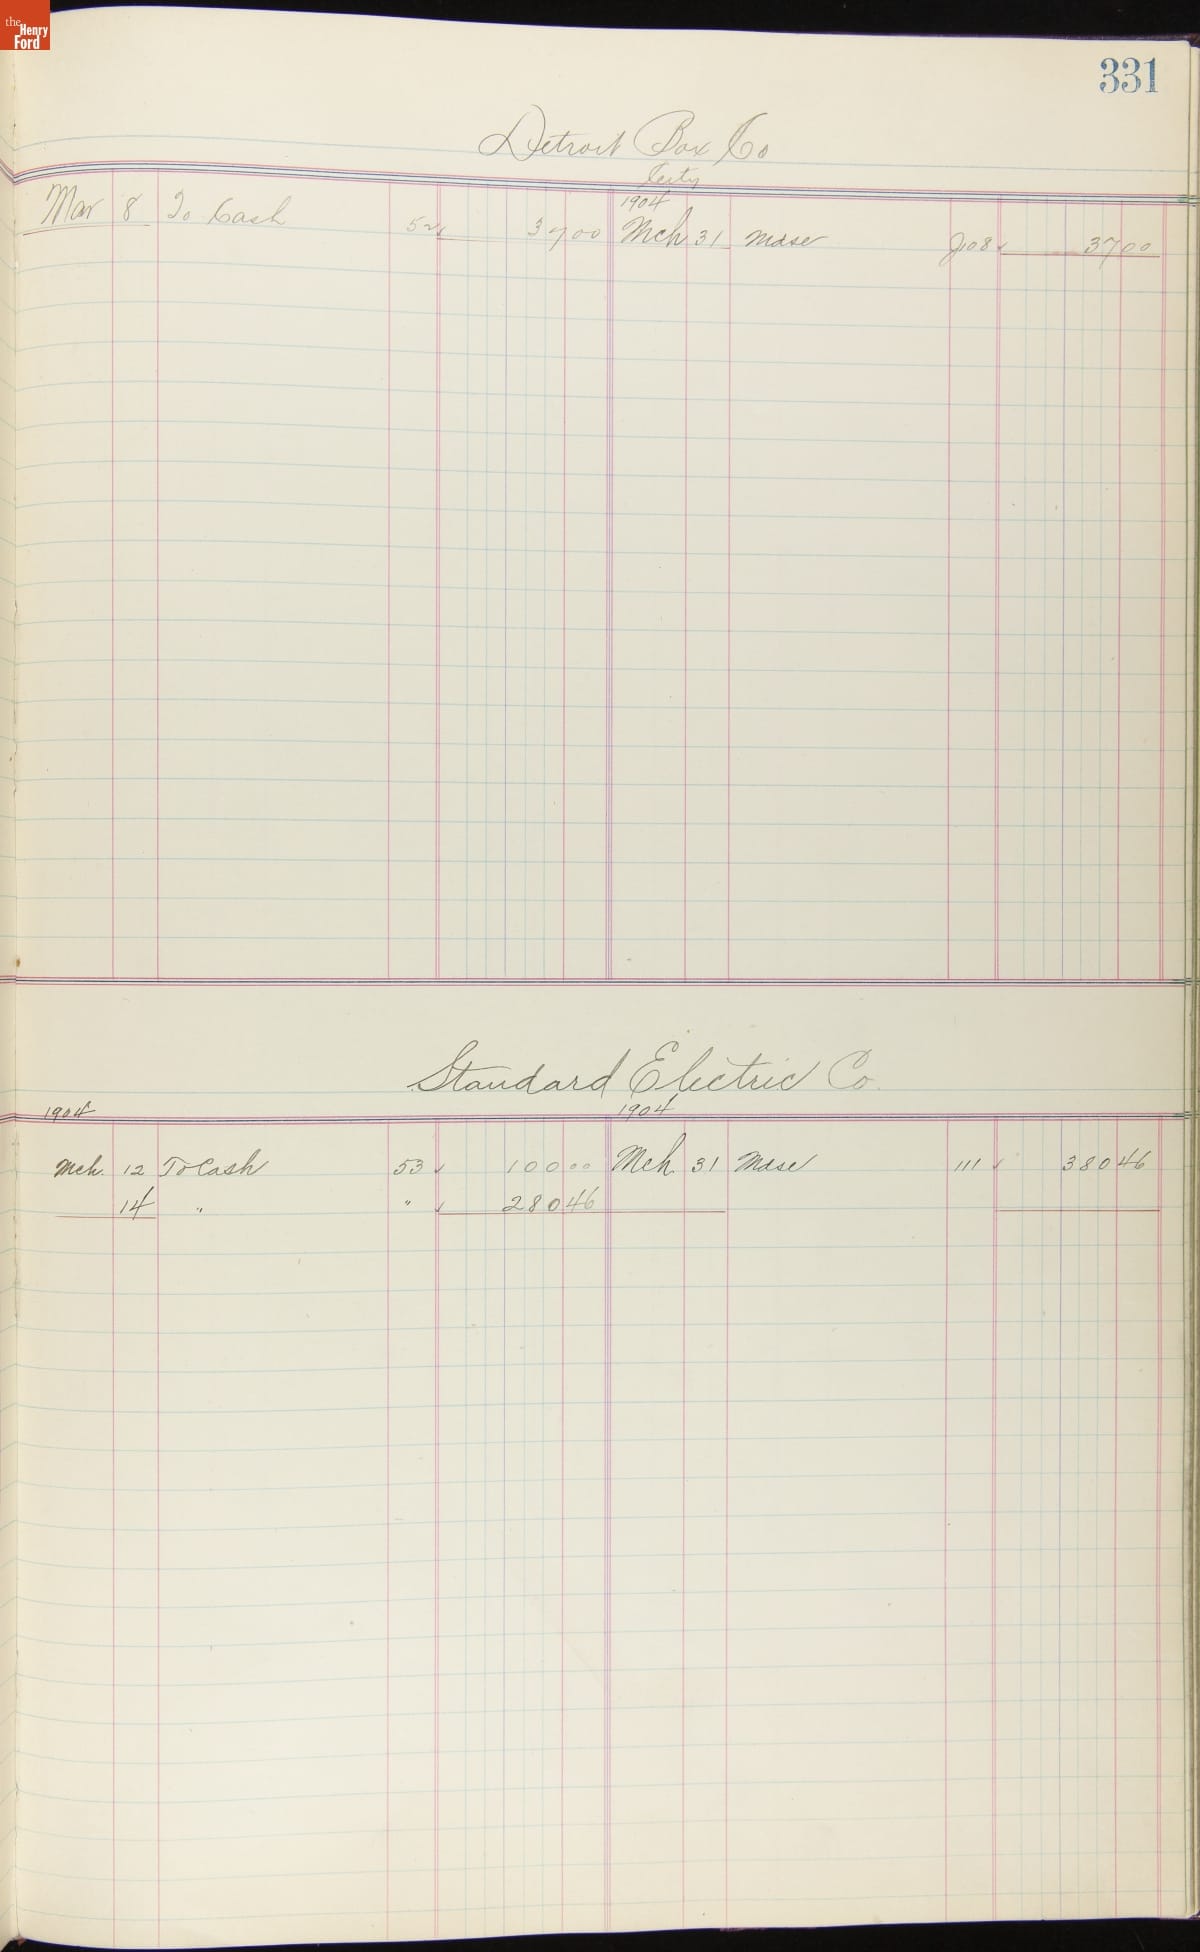 the Henry Ford
331
Detroit Box Co
City
1904
Mar 8 To Cash 52 37 00 Mch 31 Mdse J108 37 00
Standard Electric Co.
1904 1904
Mch. 12 To Cash 53 100 00 Mch. 31 Mdse 111 380 46
14 " " 280 46